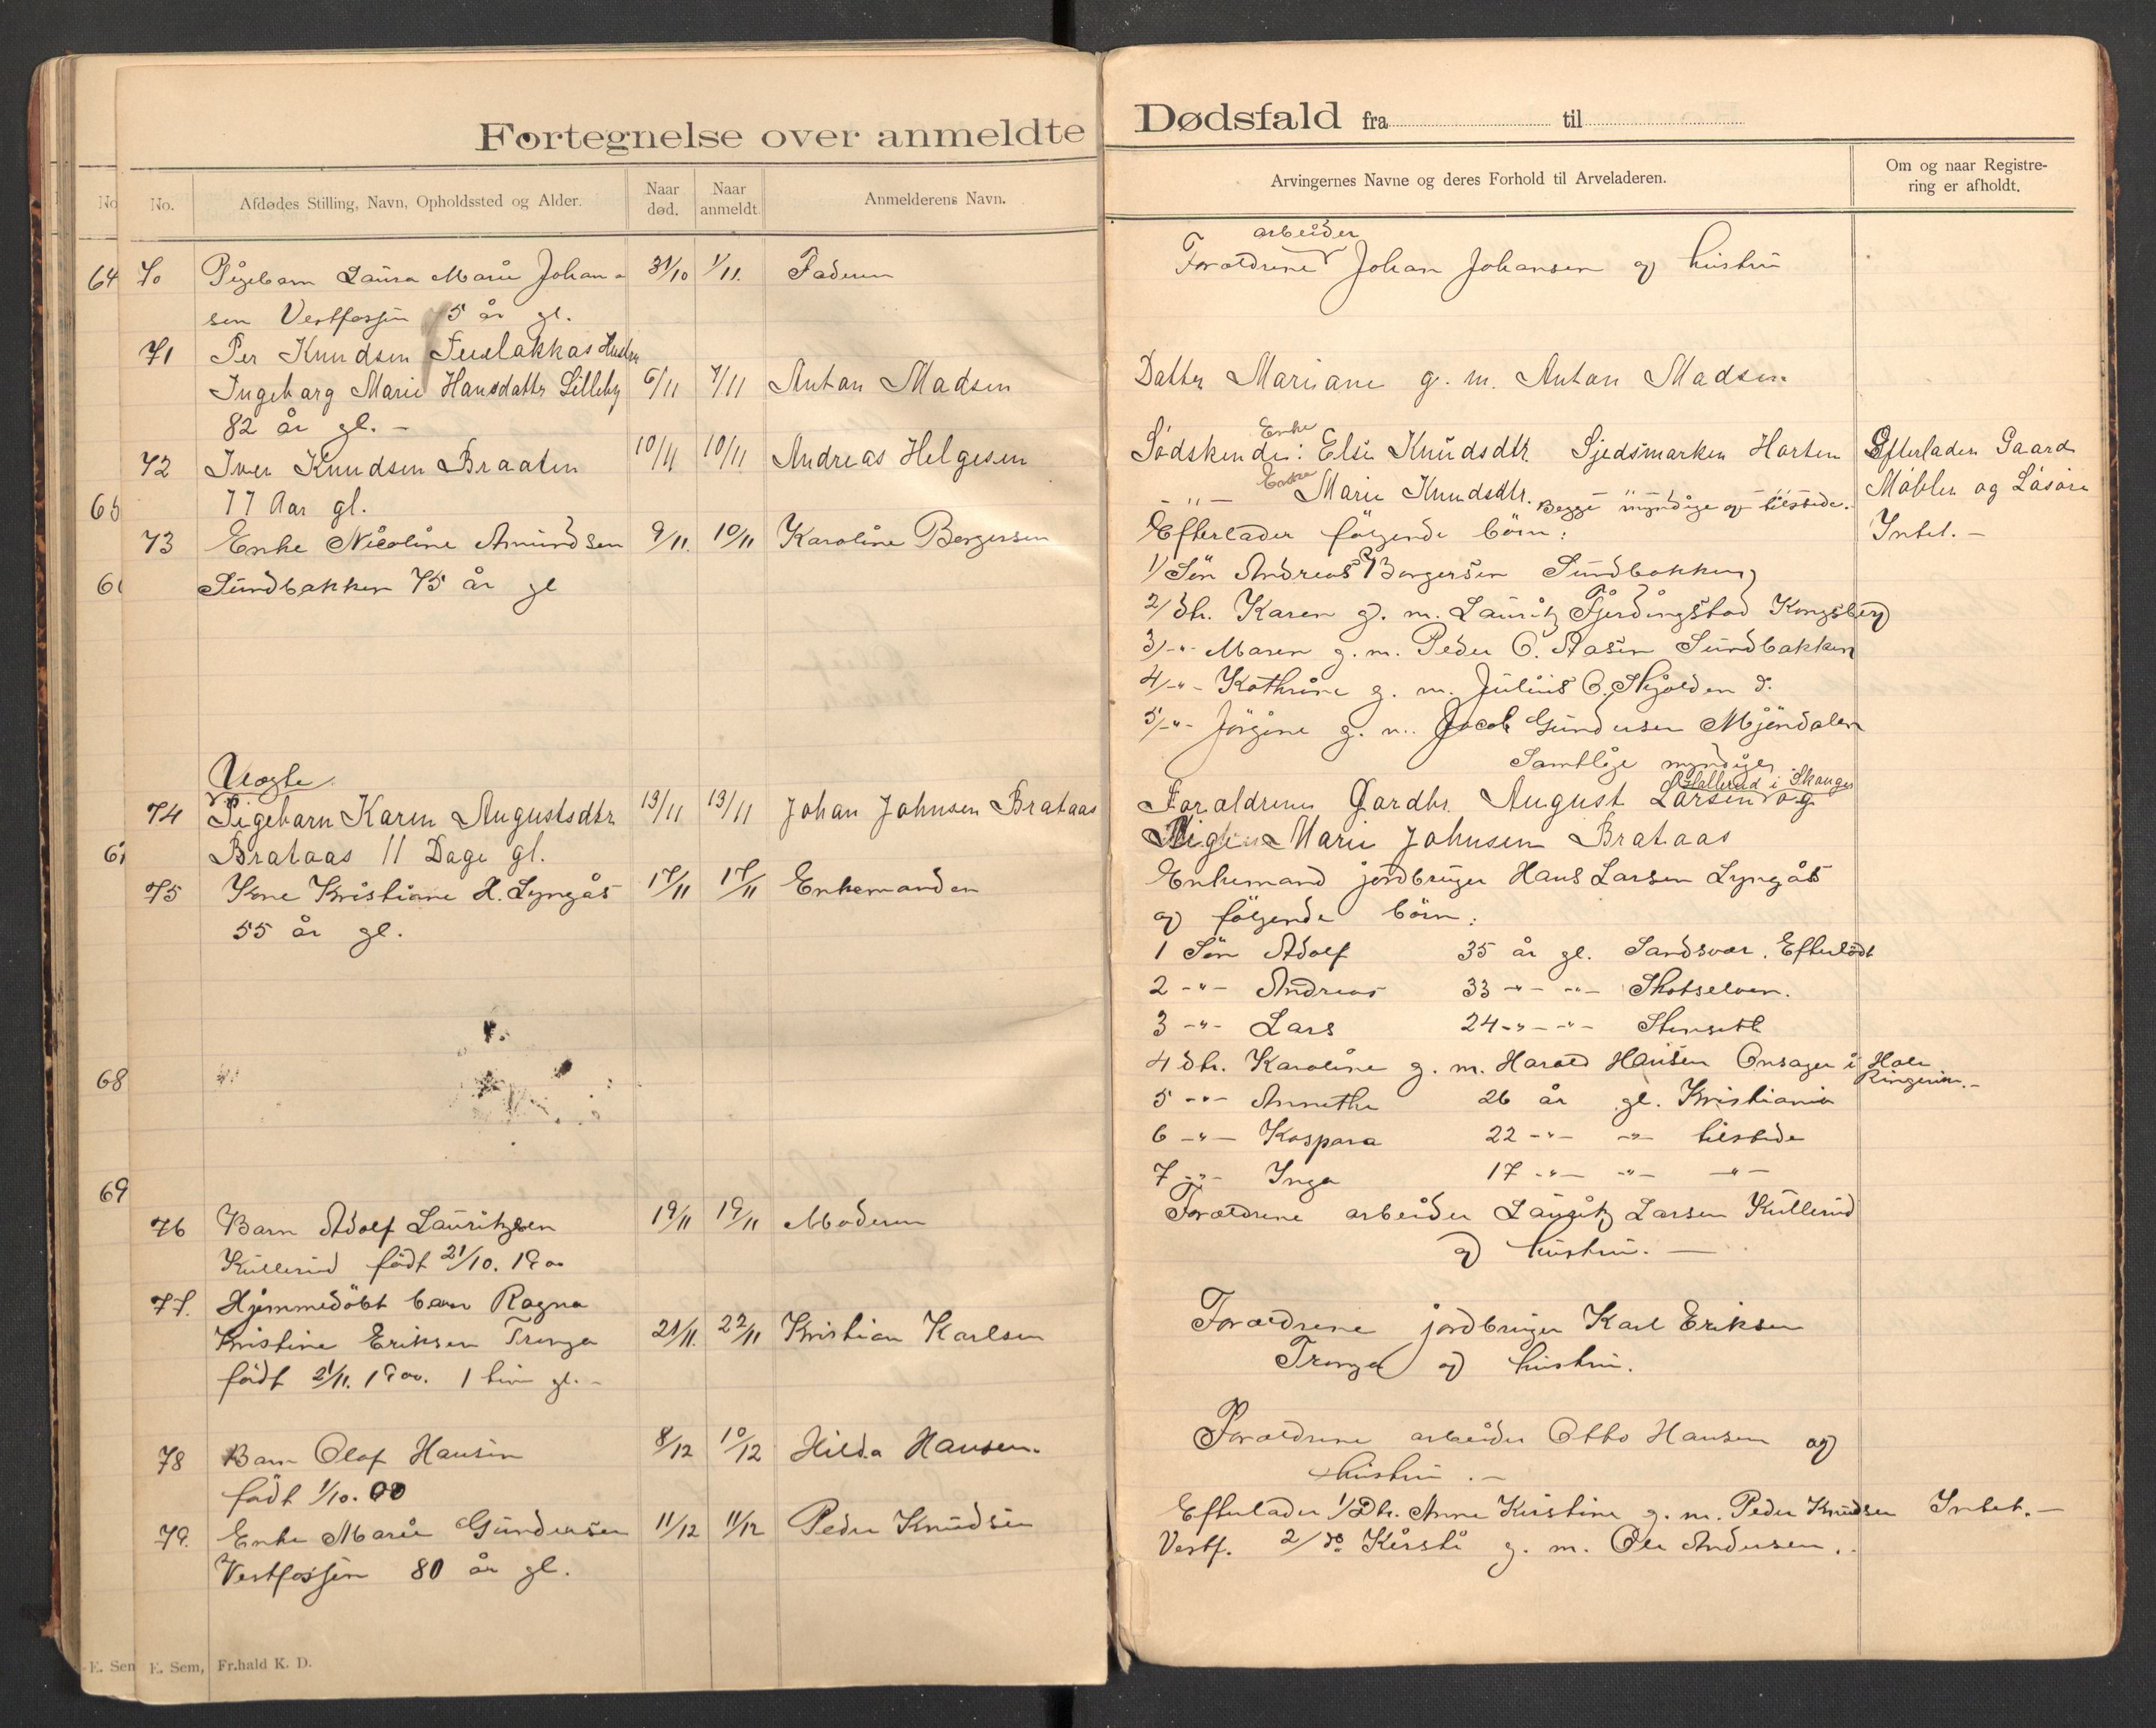 Fortegnelse over anmeldte
No.
Afdødes Stilling, Navn, Opholdssted og Alder.
Naar død.
Naar anmeldt
Anmelderens Navn.
64
65
68
69
70 Pigebarn Laura Marie Johan- 31/10 1/11. Faderen
sen Vestfossen 75 år gl.
71 Per Knudsen
Ingeborg Marie Hansdatter Lilleby 6/11 7/11 Anton Madsen
82 år gl. -
72 Iver Knudsen Braaten 10/11 10/11 Andreas Helgesen
77 Aar gl.
73 Enke Nicoline Amundsen 9/11. 10/11 Karoline Borgersen
Sundbakken 75 år gl
Uægte
74 Pigebarn Karen Augustsdtr 13/11 13/11 Johan Johnsen Brataas
Brataas 11 Dage gl.
75 Kone Kristiane H. Lyngås 17/11 17/11 Enkemanden
55 år gl.
76 Barn Adolf Lauritzsen 19/11 19/11 Moderen
Kullerud født 21/10. 1900
77. Hjemmedöbt barn Ragna
Kristine Eriksen Tronga 21/11. 22/11 Kristian Karlsen
født 21/11. 1900. 1 time gl. -
78 Barn Olaf Hansen 8/12 10/12 Hilda Hansen.
født 1/10. 00
79. Enke Marie Gundersen 11/12 11/12 Peder Knudsen
Vestfossen 80 år gl.
E. Sem, Fr.hald K. D.
Dødsfald fra til
Arvingernes Navne og deres Forhold til Arveladeren.
Om og naar Registre-
ring er afholdt.
arbeider
Forældrene Johan Johansen og hustru
Datter Mariane g. m. Anton Madsen
Enke
Södskende: Else Knudsdtr. Horten Efterlader Gaard
Enke
- " - Marie Knudsdtr. Begge myndige og tilstede. Möbler og Lösöre
Efterlader følgende børn: Intet. -
1/ Sön Andreas Borgersen Sundbakken
2/ dtr. Karen g. m. Lauritz Fjerdingstad Kongsberg
3/ -"- Maren g. m. Peder O. Aasen Sundbakken
4/ -"- Kathrine g. m. Julius O. Skjolden d.
5/ -"- Jörgine g. m. Jacob Gundersen Mjöndalen
Samtlige myndige
Hallerud i Skauger
Forældrene Gardbr. August Larsen og
Pigen Marie Johnsen Brataas
Enkemand jordbruger Hans Larsen Lyngås
og følgende børn:
1 Sön Adolf 35 år gl. Sandsvær. Efterlödt
2 -"- Andreas 33 -"- -"- Skotselven.
3 -"- Lars 24 -"- -"- Stenseth
4 dtr. Karoline g. m. Harald Hansen Onsager i Hole
Ringerike. -
5 -"- Annethe 26 år gl. Kristiania
6 -"- Kaspara 22 -"- -"- tilstede
7 -"- Inga 17 -"- -"- -"-
Forældrene arbeider Lauritz Larsen Kullerud
og hustru. -
Forældrene jordbruger Karl Eriksen
Tronga og hustru.
Forældrene arbeider Otto Hansen og
hustru. -
Efterlader 1/ Dtr. Anne Kirstine g. m. Peder Knudsen Intet. -
Vestf. 2/ do Kirsti g. m. Ole Andersen.